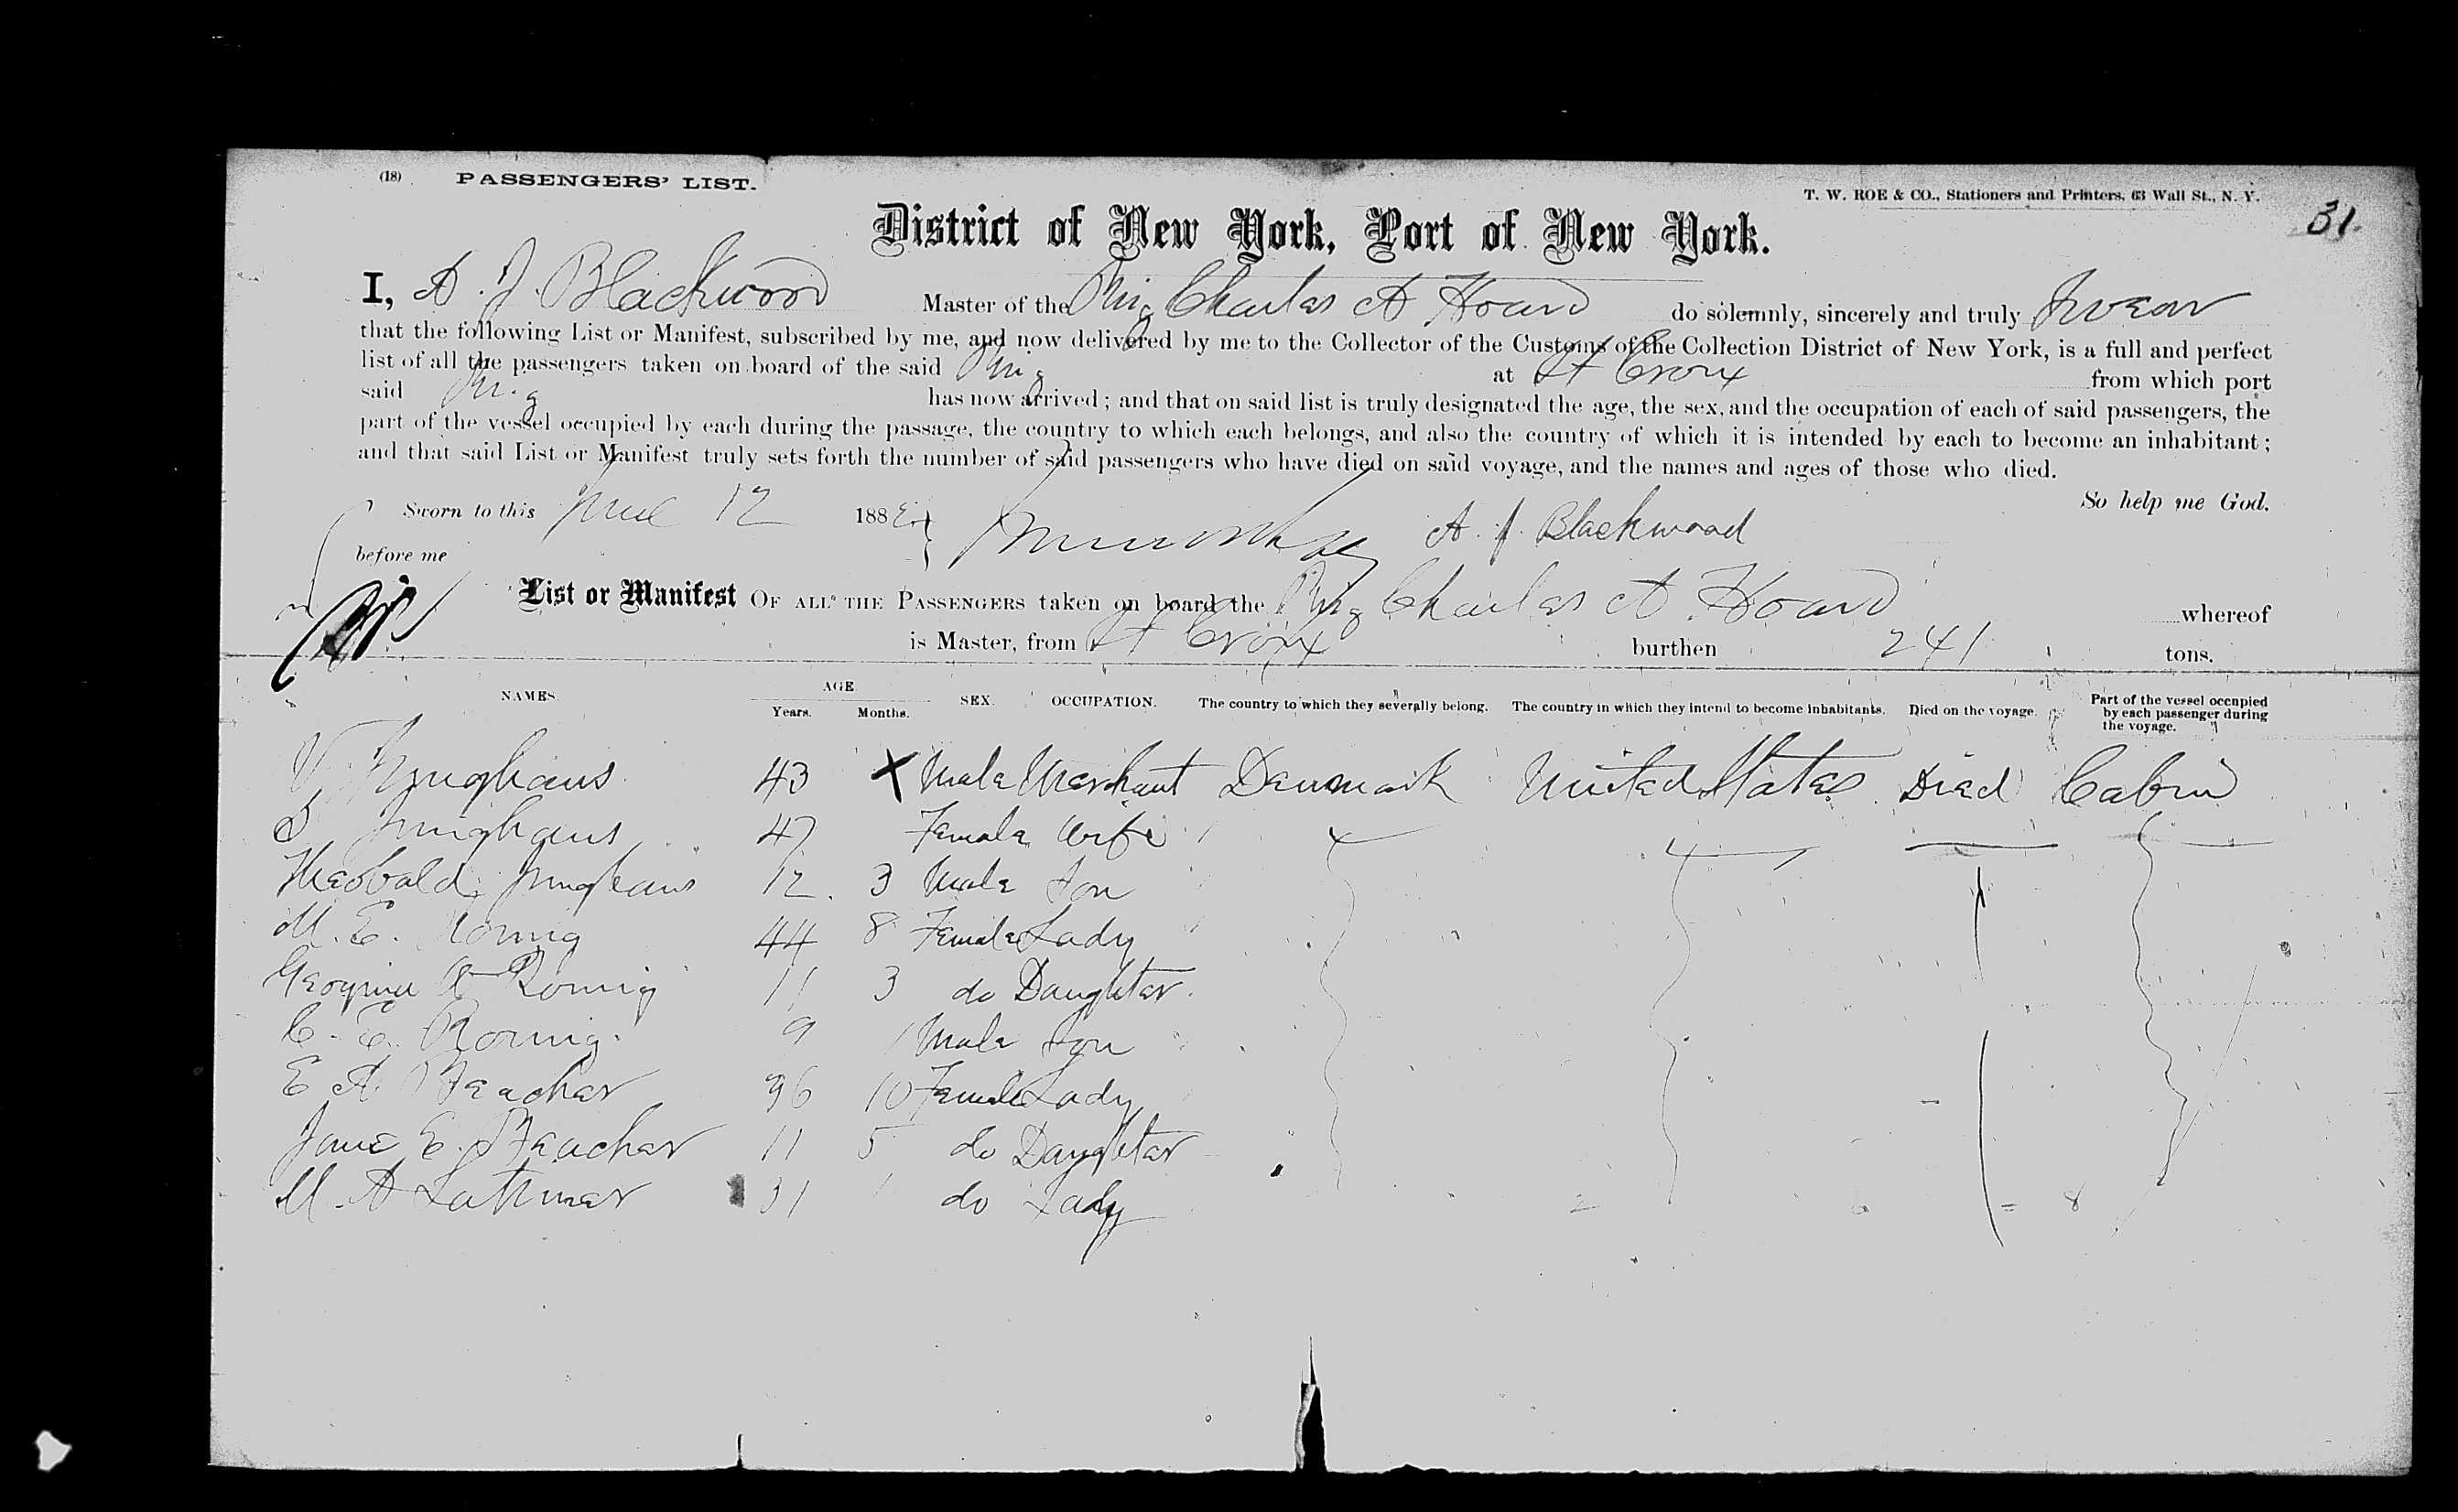 (18) PASSENGERS' LIST.
T. W. ROE & CO., Stationers and Printers, 63 Wall St., N. Y.
31.
District of New York, Port of New York.
I, A. J. Blackwood Master of the Brig Charles A Hoard do solemnly, sincerely and truly Swear
that the following List or Manifest, subscribed by me, and now delivered by me to the Collector of the Customs of the Collection District of New York, is a full and perfect
list of all the passengers taken on board of the said Brig at St Croix from which port
said Brig has now arrived; and that on said list is truly designated the age, the sex, and the occupation of each of said passengers, the
part of the vessel occupied by each during the passage, the country to which each belongs, and also the country of which it is intended by each to become an inhabitant;
and that said List or Manifest truly sets forth the number of said passengers who have died on said voyage, and the names and ages of those who died.
So help me God.
Sworn to this June 12 1882
A. J. Blackwood
before me
List or Manifest OF ALL THE PASSENGERS taken on board the Brig Charles A Hoard whereof
is Master, from St Croix burthen 241 tons.
NAMES AGE Years. Months. SEX. OCCUPATION. The country to which they severally belong. The country in which they intend to become inhabitants. Died on the voyage. Part of the vessel occupied by each passenger during the voyage.
V Junghaus 43 X Male Merchant Denmark United States Died Cabin
S Junghaus 47 Female Wife
Theobald Junghaus 12 3 Male Son
M. E. Romig 44 8 Female Lady
Georgina A Romig 11 3 do Daughter
C. E. Romig 9 Male Son
E A. Beacher 36 10 Female Lady
Jane E. Beacher 11 5 do Daughter
M. A Latimer 31 do Lady
2 6 = 8